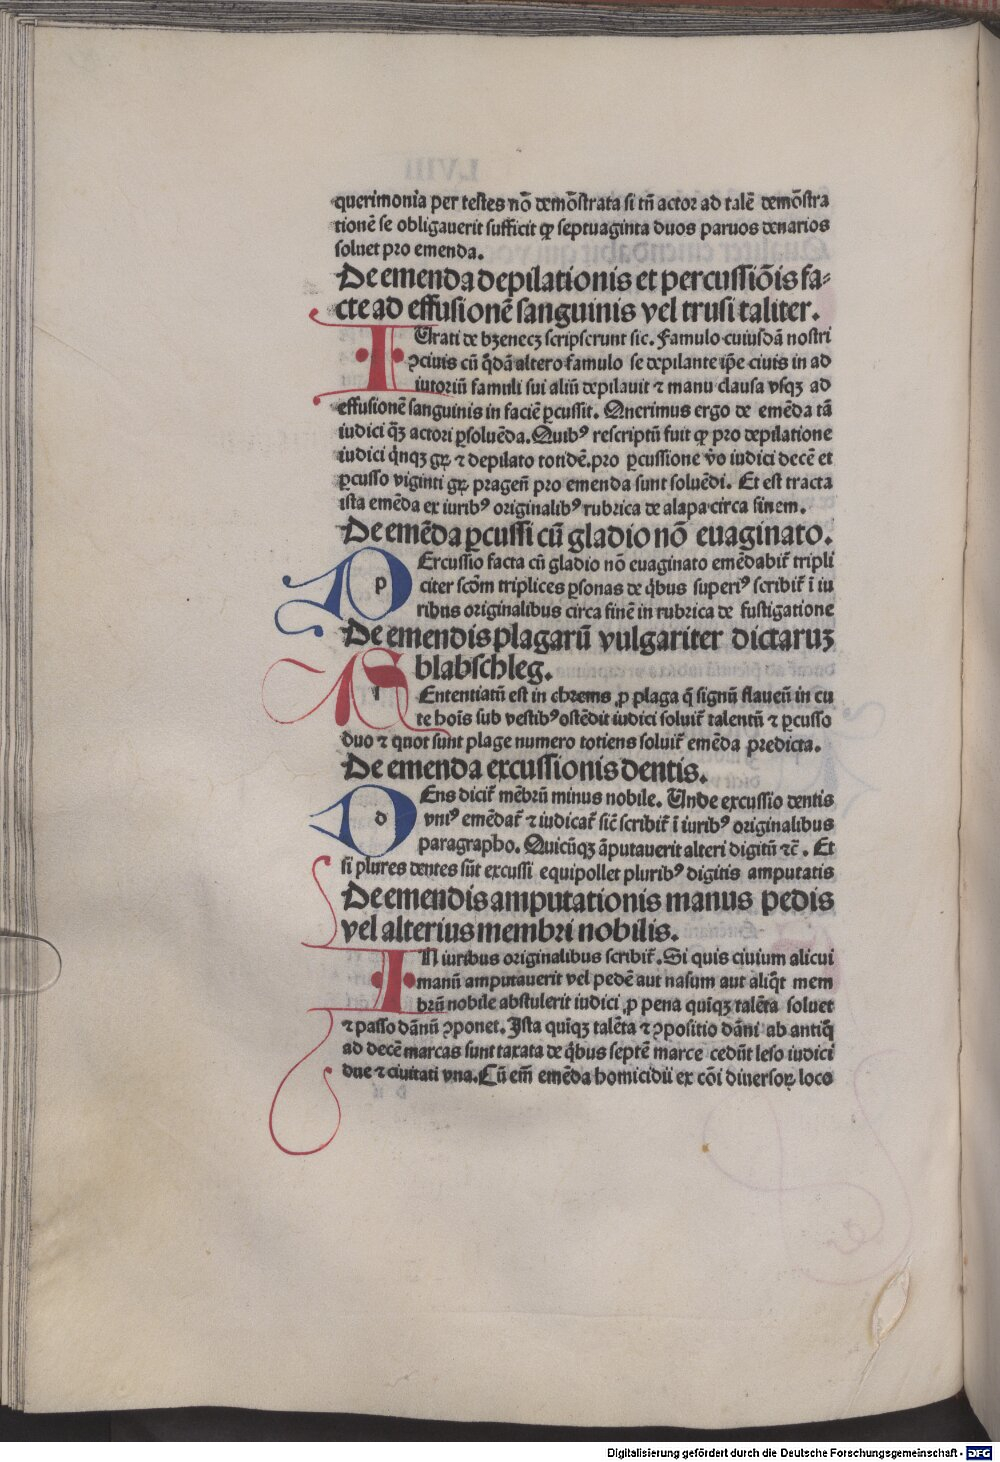 querimonia per testes nō demōstrata si tñ actor ad talē demōstra
tionē se obligauerit sufficit ꝙ septuaginta duos paruos denarios
soluet pro emenda.
De emenda depilationis et percussiōis fa-
cte ad effusionē sanguinis vel trusi taliter.
IUrati de bzenecz scripserunt sic. Famulo cuiusdā nostri
ↄciuis cū q̄dā altero famulo se depilante ip̄e ciuis in ad
iutoriū famuli sui aliū depilauit ⁊ manu clausa vsqꝫ ad
effusionē sanguinis in faciē ꝑcussit. Querimus ergo de emēda tā
iudici q̄ꝫ actori ꝑsoluēda. Quibꝰ rescriptū fuit ꝙ pro depilatione
iudici q̄nqꝫ gꝝ ⁊ depilato totidē. pro ꝑcussione v̄o iudici decē et
ꝑcusso viginti gꝝ pragen̄ pro emenda sunt soluēdi. Et est tracta
ista emēda ex iuribꝰ originalibꝰ rubrica de alapa circa finem.
De emēda ꝑcussi cū gladio nō euaginato.
p
PErcussio facta cū gladio nō euaginato emēdabit̄ tripli
citer scōm triplices ꝑsonas de q̄bus superiꝰ scribit̄ ī iu
ribus originalibus circa finē in rubrica de fustigatione
De emendis plagarū vulgariter dictaruꝫ
blabschleg.
SEntentiatū est in chrems ꝓ plaga q̄ signū flaueū in cu
te hoīs sub vestibꝰ ostēdit iudici soluit̄ talentū ⁊ ꝑcusso
duo ⁊ quot sunt plage numero totiens soluit̄ emēda predicta.
De emenda excussionis dentis.
d
DEns dicit̄ mēbrū minus nobile. Unde excussio dentis
vniꝰ emēdat̄ ⁊ iudicat̄ sic̄ scribit̄ ī iuribꝰ originalibus
paragrapho. Quicūqꝫ āputauerit alteri digitū ⁊c̄. Et
si plures dentes sūt excussi equipollet pluribꝰ digitis amputatis
De emendis amputationis manus pedis
vel alterius membri nobilis.
IN iuribus originalibus scribit̄. Si quis ciuium alicui
manū amputauerit vel pedē aut nasum aut aliq̄t mem
brū nobile abstulerit iudici ꝓ pena quīqꝫ talēta soluet
⁊ passo dānū ↄponet. Ista quīqꝫ talēta ⁊ ↄpositio dāni ab antiq̄
ad decē marcas sunt taxata de q̄bus septē marce cedūt leso iudici
due ⁊ ciuitati vna. Cū em̄ emēda homicidii ex cōi diuersoꝝ loco
Digitalisierung gefördert durch die Deutsche Forschungsgemeinschaft - DFG